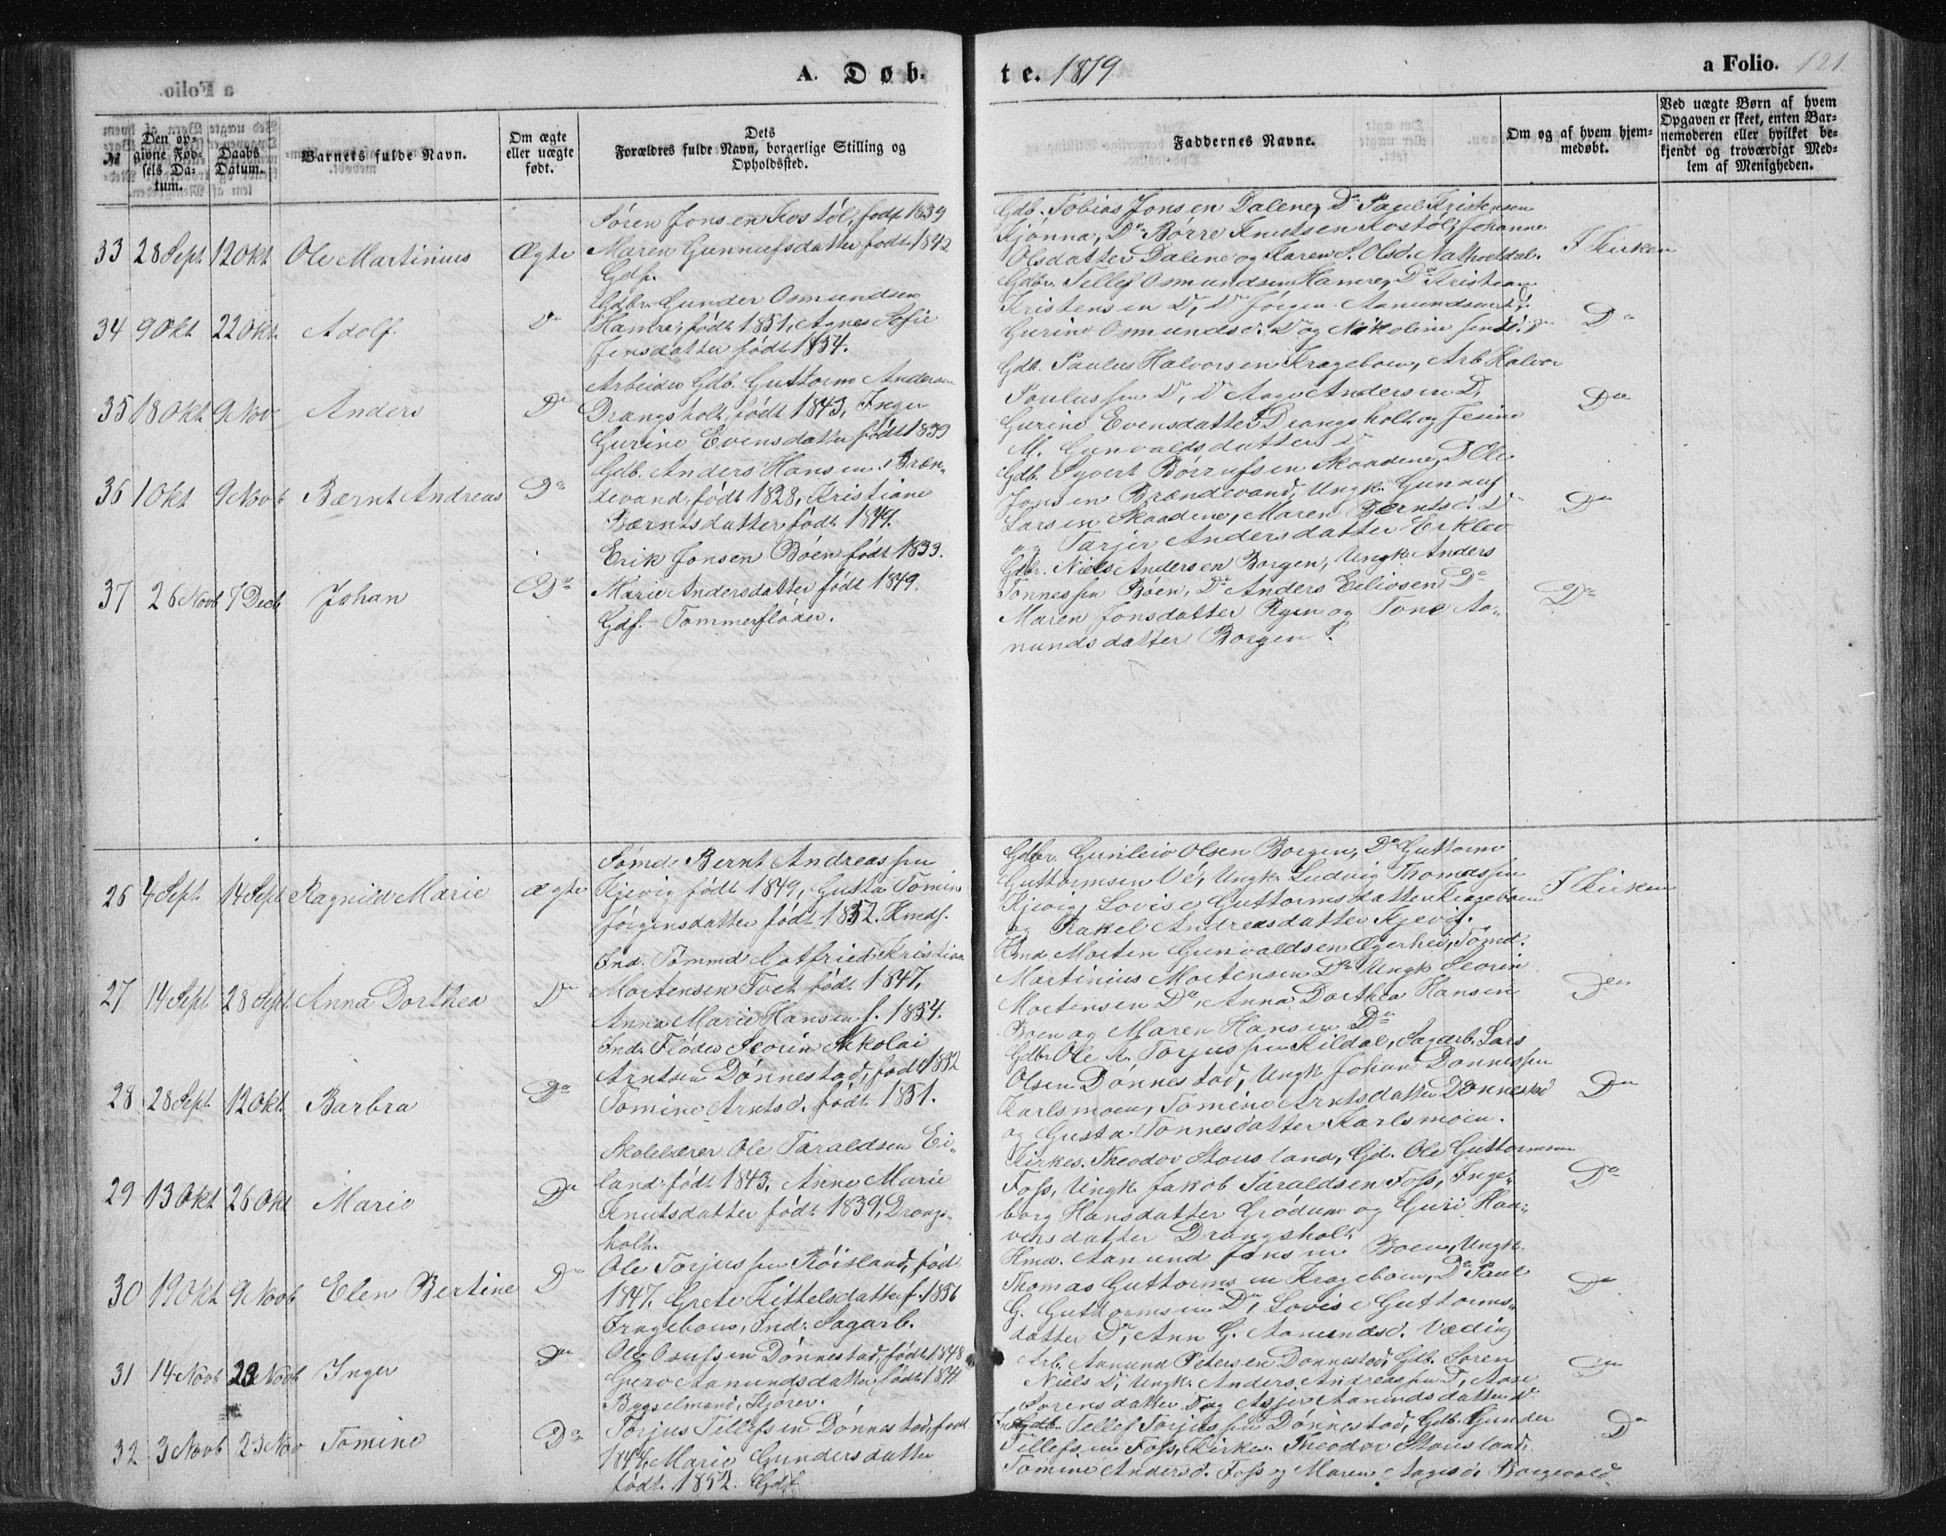 A. Døb
te. 1879
a Folio. 121.
№
Den opgivne Fødsels Datum.
Daabs Datum.
Barnets fulde Navn.
Om ægte eller uægte født.
Dets Forældres fulde Navn, borgerlige Stilling og Opholdssted.
Faddernes Navne.
Om og af hvem hjemmedøbt.
Ved uægte Børn af hvem Opgaven er skeet, enten Barnemoderen eller hvilket bekjendt og troværdigt Medlem af Menigheden.
33 28 Sept 12 Okt Ole Martinius Ægte
Søren Jonsen Kostøl, født 1839
Maren Gunnufsdatter født 1842
Gdf.
Gdb. Tobias Jonsen Dalene, Do Paul Kristensen
Kjønna, Do Børre Knutsen Kostøl, Johanne
Olsdatter Dalene og Karen S. Olsd.
I Kirken
34 9 Okt 22 Okt. Adolf. Do
Gdbr. Gunder Osmundsen
Hamre, født 1851, Agnes Sofie
Jensdatter født 1854.
Gdbr. Tellef Osmundsen Hamre, Do Kristian
Kristensen Do, Do Jørgen Aanundsen
Gurine Osmundsd. Do og Nikoline
Do
35 18 Okt 9 Nov Anders Do
Arbeider Gdb. Guttorm Andersen
Drangsholt, født 1843, Inger
Gurine Evensdatter født 1839
Gdb. Paulus Halvorsen Krageboen, Arb. Halvor
Paulussen Do, Do Aage Andersen Do,
Gurine Evensdatter Drangsholt og Jesine
M. Gunvaldsdatter Do
Do
36 1 Okt 9 Novb Bærnt Andreas Do
Gdb. Anders Hansen Bræn-
devand, født 1828, Kristiane
Bærntsdatter født 1849.
Gdb. Syvert Børrufsen Skaadene, Do Ole
Jonsen Brændevand, Ungk. Gunnuf
Larsen Skaadene, Maren Bærntsd. Do
og Tarjer Andersdatter Erklev
Do
37 26 Novb 7 Decb Johan Do
Erik Jonsen Bøen født 1833.
Marie Andersdatter født 1849.
Gdf. Tømmerfløder.
Gdbr. Niels Andersen Borgen, Ungk. Anders
Tønnessen Bøen, Do Anders Eiliosen Do
Maren Jonsdatter Ryen og Tone Aa-
nundsdatter Borgen.
Do
26 4 Sept 14 Sept Ragnild Marie ægte
Sømd. Bernt Andreassen
Kjevig født 1849, Gusta Tomine
Jørgensdatter født 1852. Hmdf.
Gdbr. Gunleiv Olsen Borgen, Do Guttorm
Guttormsen Ve, Ungk. Ludvig Thomassen
Kjevig, Lovise Guttormsdatter Krageboen
og Rakel Andreasdatter Kjevig.
I Kirken
27 14 Sept 28 Sept. Anna Dorthea Do
Ind. Tømmd Gotfried Kristian
Mortensen Tvet født 1847,
Anna Marie Hansen f. 1854.
Hmd. Morten Gunvaldsen Ægerhei, Tømd.
Martinius Mortensen Do Ungk Seorin
Mortensen Do, Anna Dorthea Hansen
Boen og Maren Hansen Do
Do
28 28 Sept. 12 Okt Barbra Do
Ind. Fløder Seorin Nikolai
Arntsen Dønnestad, født 1852
Tomine Arntsd. født 1851.
Gdbr. Ole A. Torjussen Kildal, Sagarb. Lars
Olsen Dønnestad, Ungk Johan Tønnessen
Karlsmoen, Tomine Arntsdatter Dønnestad
og Gusta Tønnesdatter Karlsmoen.
Do
29 13 Okt 26 Okt Marie Do
Skolelærer Ole Taraldsen Ei-
land født 1843, Anne Marie
Knutsdatter født 1839, Drangs-
holt.
Kirkes. Theodor Stousland, Gd. Ole Guttormsen
Foss, Ungk. Jakob Taraldsen Foss, Inge-
borg Hansdatter Grødum og Guri Haa-
vensdatter Drangsholt
Do
30 19 Okt 9 Novb Elen Bertine Do
Ole Torjussen Røisland, født
1847, Grete Kittelsdatter f. 1856
Krageboen, Ind. Sagarb.
Hmd. Aanund Jonsen Boen, Ungk.
Thomas Guttormsen Krageboen, Do Paul
G. Guttormsen Do, Lovise Guttorms-
datter Do, Ann G. Aamundsd. Væding
Do
31 14 Novb 23 Novb Inger Do
Ole Osufsen Dønnestad, født 1848
Guro Aanundsdatter født 1844
Bygselmand, Kjører.
Arb. Aanund Petersen Dønnestad, Gdb. Søren
Niels Do, Ungk. Anders Andreassen Do, Aase
Sørensdatter Do og Asjer Aanundsdatter Do
Do
32 3 Novb 23 Nov Tomine Do
Torjus Tellefsen Dønnestad, født
1844, Marie Gundersdatter
født 1852. Gdf.
Gdb. Tellef Torjussen Dønnestad, Gdb. Gunder
Tellefsen Foss, Kirkes. Theodor Stousland,
Tomine Andersd. Foss og Maren Aagesd. Borgevold
Do